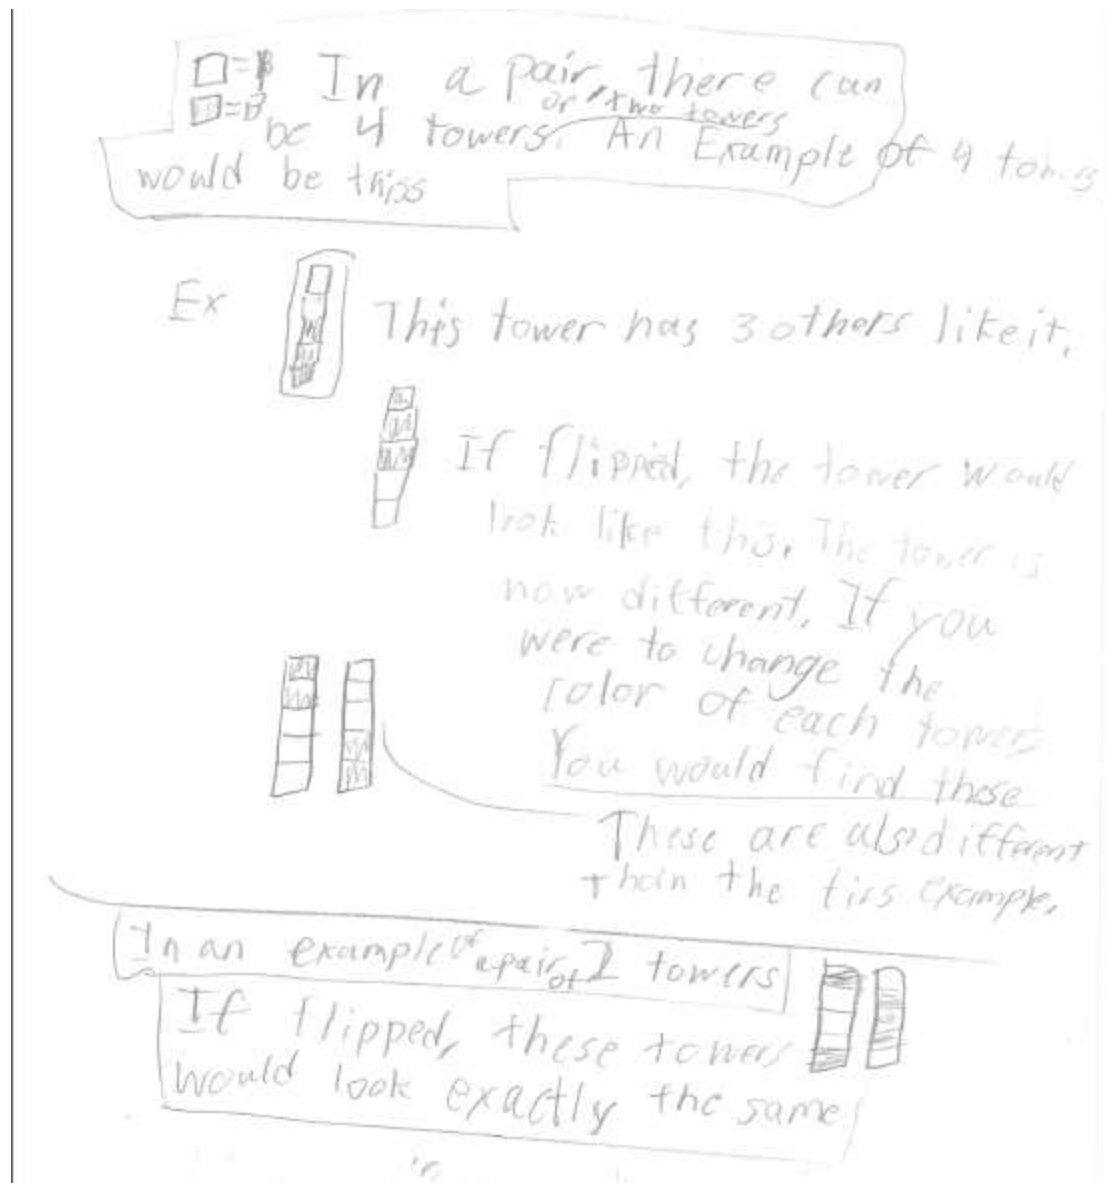 □= In a pair, there can
or two towers
▨=B be 4 towers. An Example of 4 towers
would be this
Ex This tower has 3 others like it.
If flipped, the tower would
look like this. The tower is
now different. If you
were to change the
color of each tower
You would find these
These are also different
than the firs example.
In an example of a pair of 2 towers
If flipped, these towers
would look exactly the same